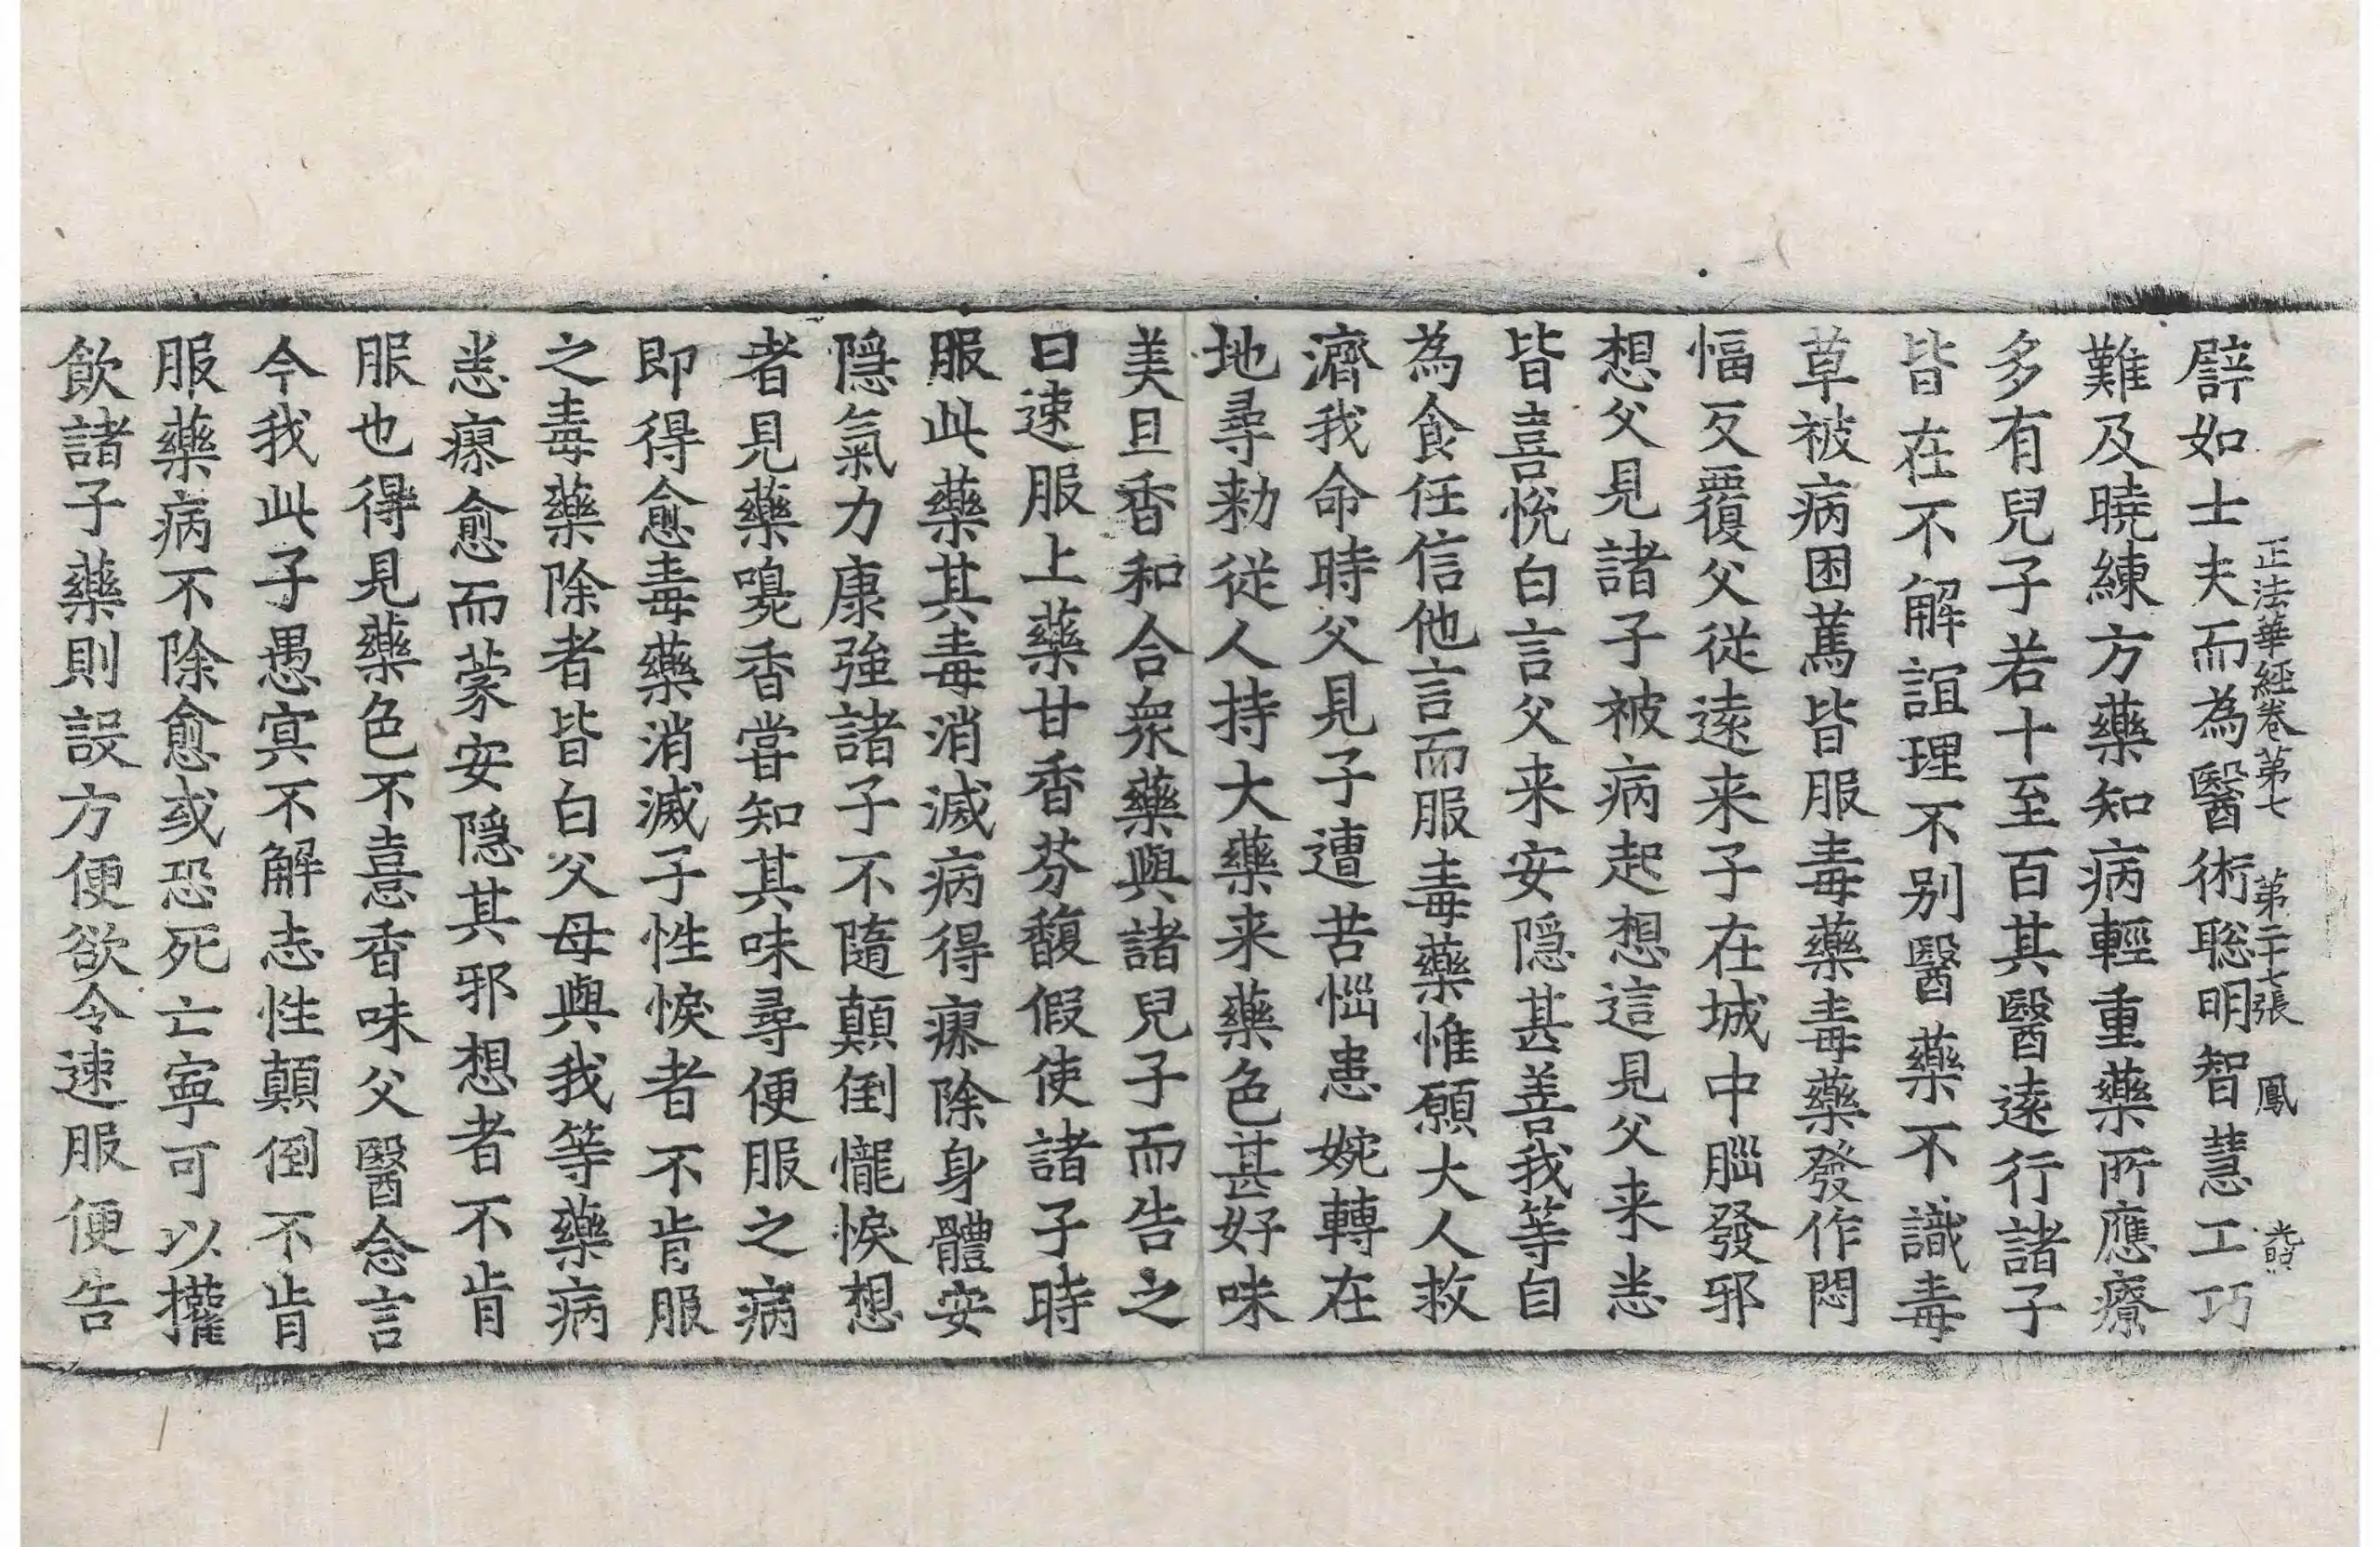 正法華經卷第七 第二十七張 鳳
譬如士夫而為醫術聡明智慧工巧
難及曉練方藥知病輕重藥所應療
多有兒子若十至百其醫遠行諸子
皆在不解誼理不别醫藥不識毒
草被病困篤皆服毒藥毒藥發作悶
愊反覆父從遠来子在城中腦發邪
想父見諸子被病起想這見父来悉
皆喜悅白言父来安隱甚善我等自
為食任信他言而服毒藥惟願大人救
濟我命時父見子遭苦惱患婉轉在
地尋勑從人持大藥来藥色甚好味
美且香和合衆藥與諸兒子而告之
曰速服上藥甘香芬馥假使諸子時
服此藥其毒消滅病得瘳除身體安
隱氣力康強諸子不隨顛倒憹悷想
者見藥嗅香嘗知其味尋便服之病
即得愈毒藥消滅子性悷者不肯服
之毒藥除者皆白父母與我等藥病
悉瘳愈而蒙安隱其邪想者不肯
服也得見藥色不憙香味父醫念言
今我此子愚冥不解志性顛倒不肯
服藥病不除愈或恐死亡寧可以權
飲諸子藥則設方便欲令速服便告